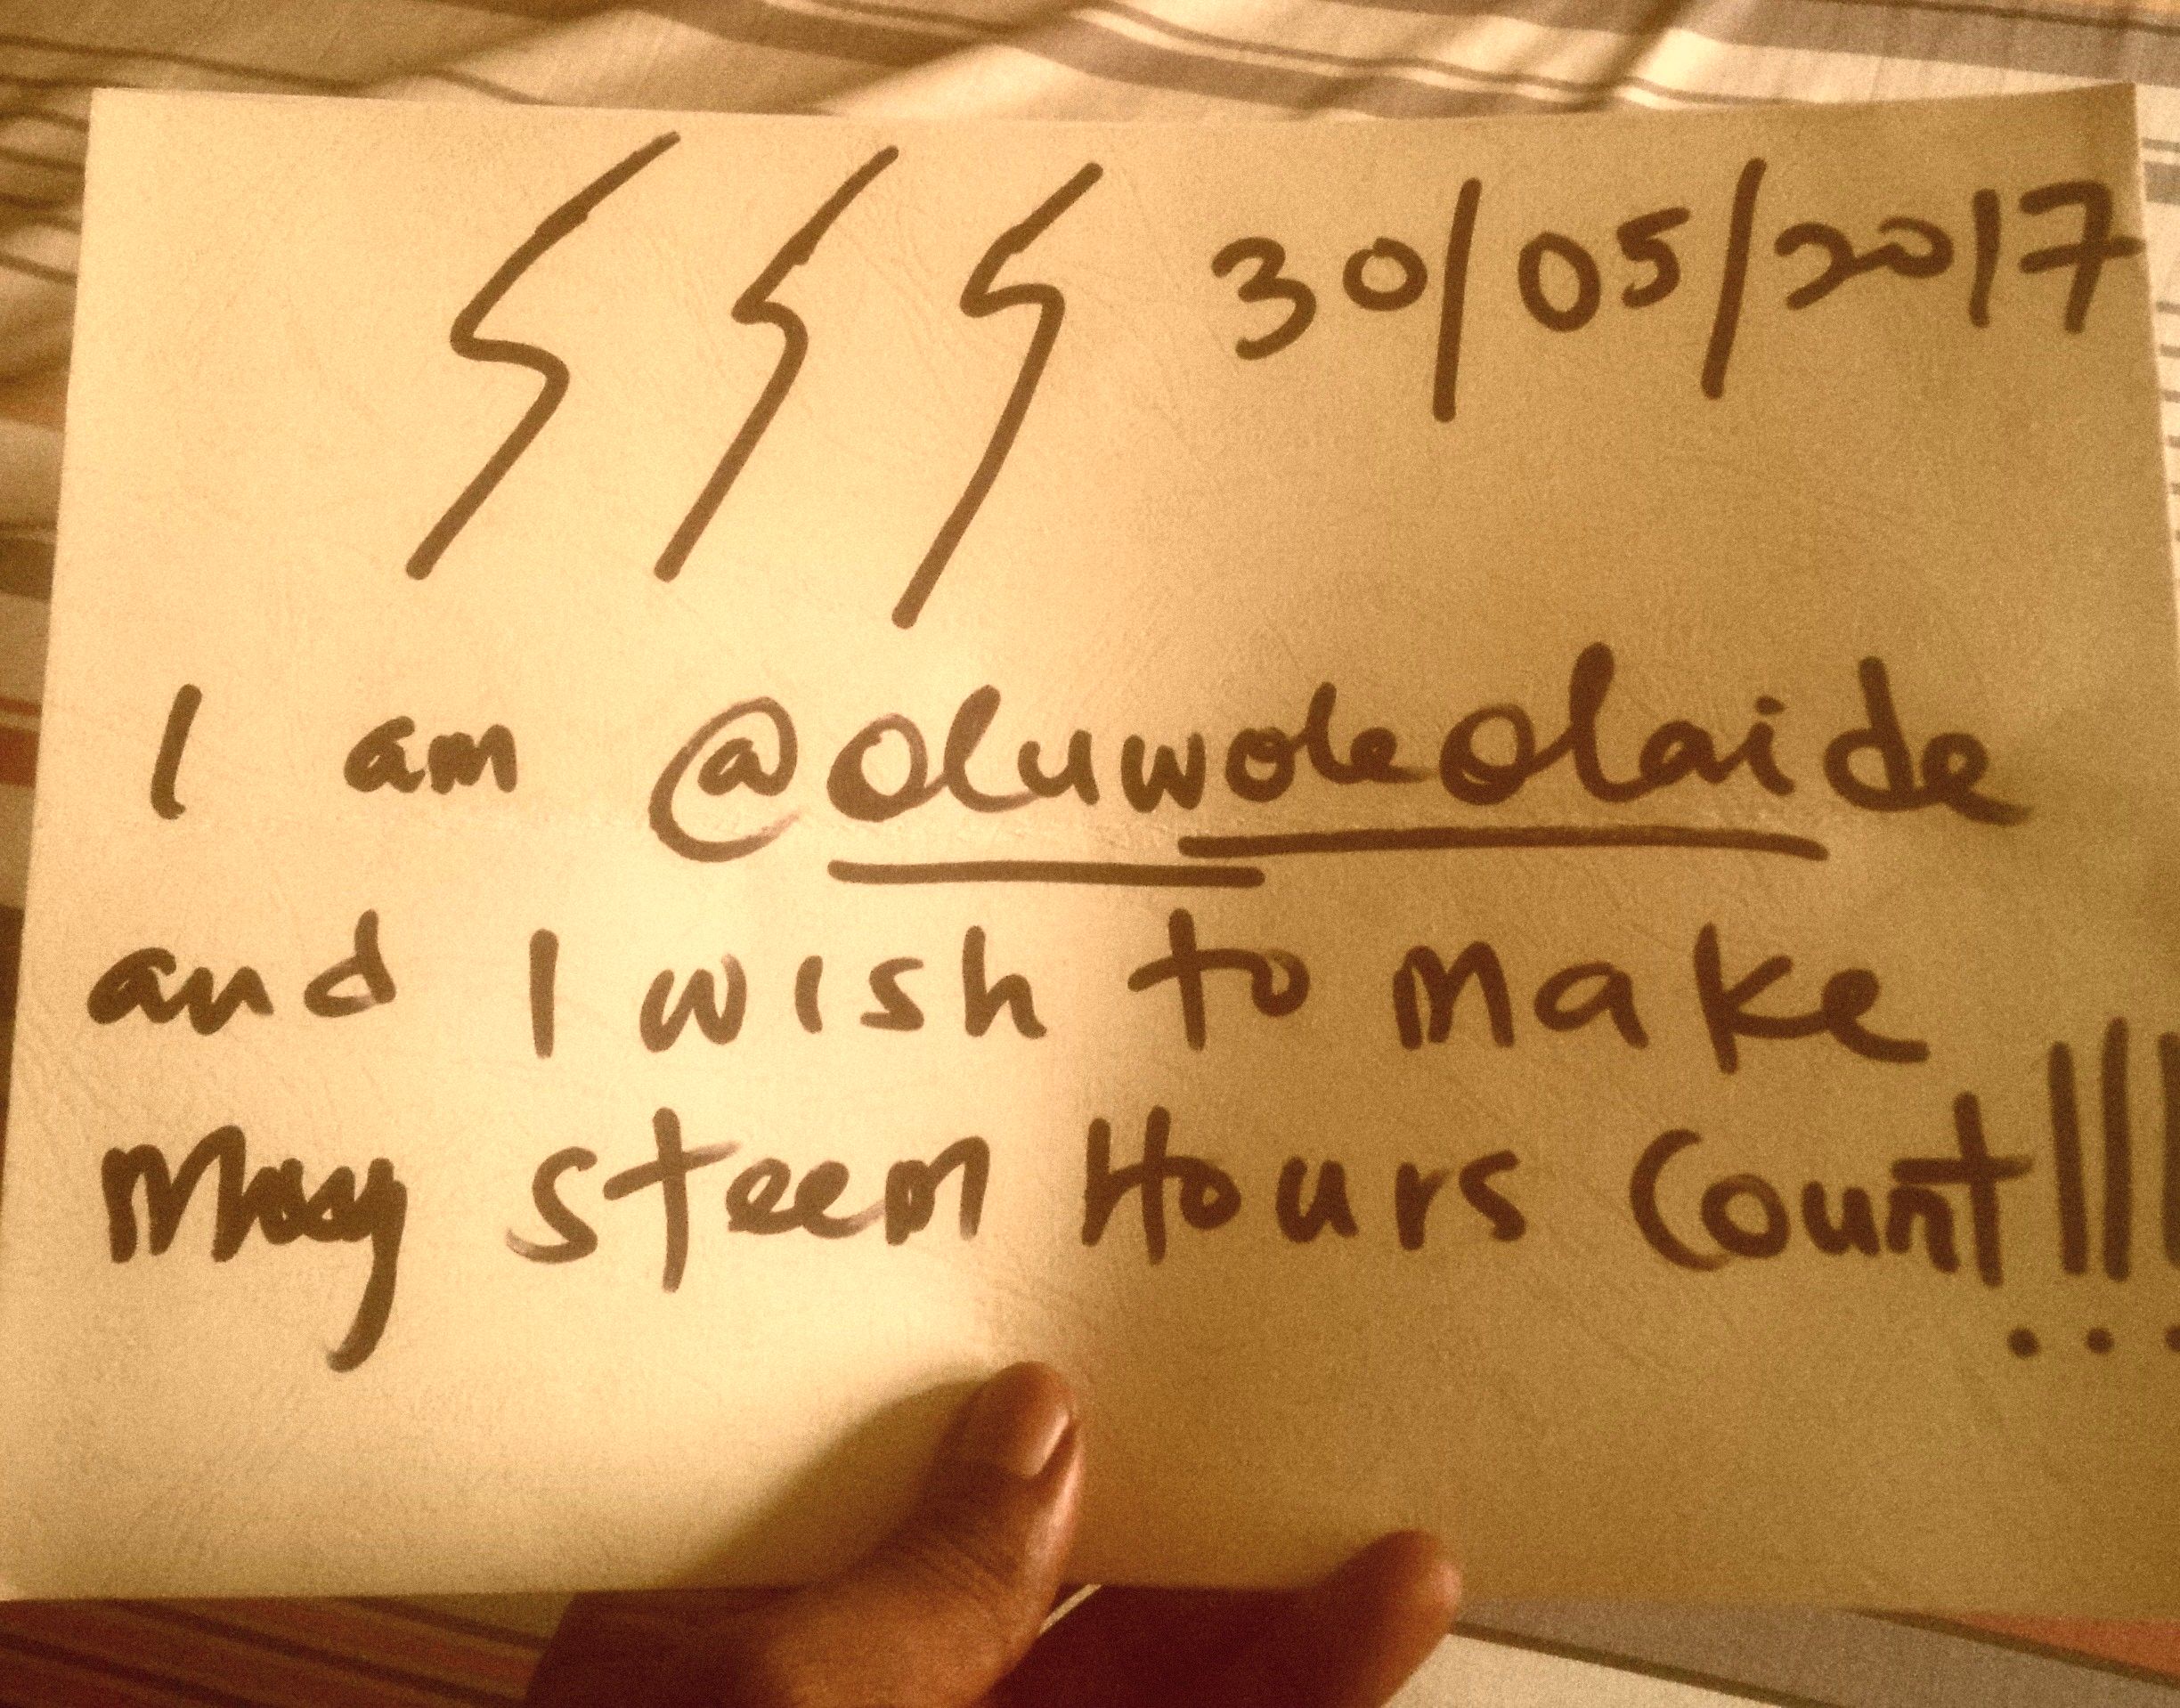 30/05/2017
I am @oluwoleolaide
and I wish to make
my steem Hours Count!!!